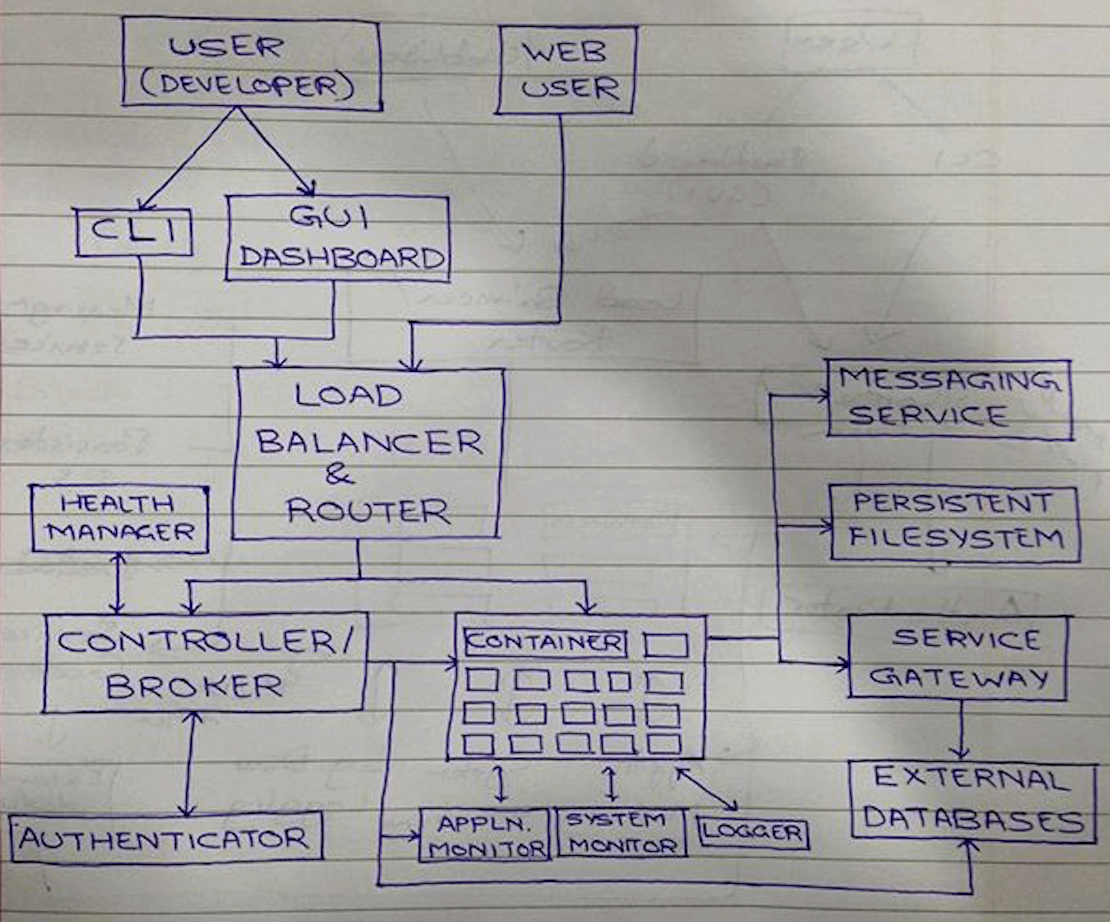 USER
(DEVELOPER)
WEB
USER
CLI
GUI
DASHBOARD
LOAD
BALANCER
&
ROUTER
MESSAGING
SERVICE
HEALTH
MANAGER
PERSISTENT
FILESYSTEM
CONTROLLER/
BROKER
CONTAINER
SERVICE
GATEWAY
EXTERNAL
DATABASES
AUTHENTICATOR
APPLN.
MONITOR
SYSTEM
MONITOR
LOGGER